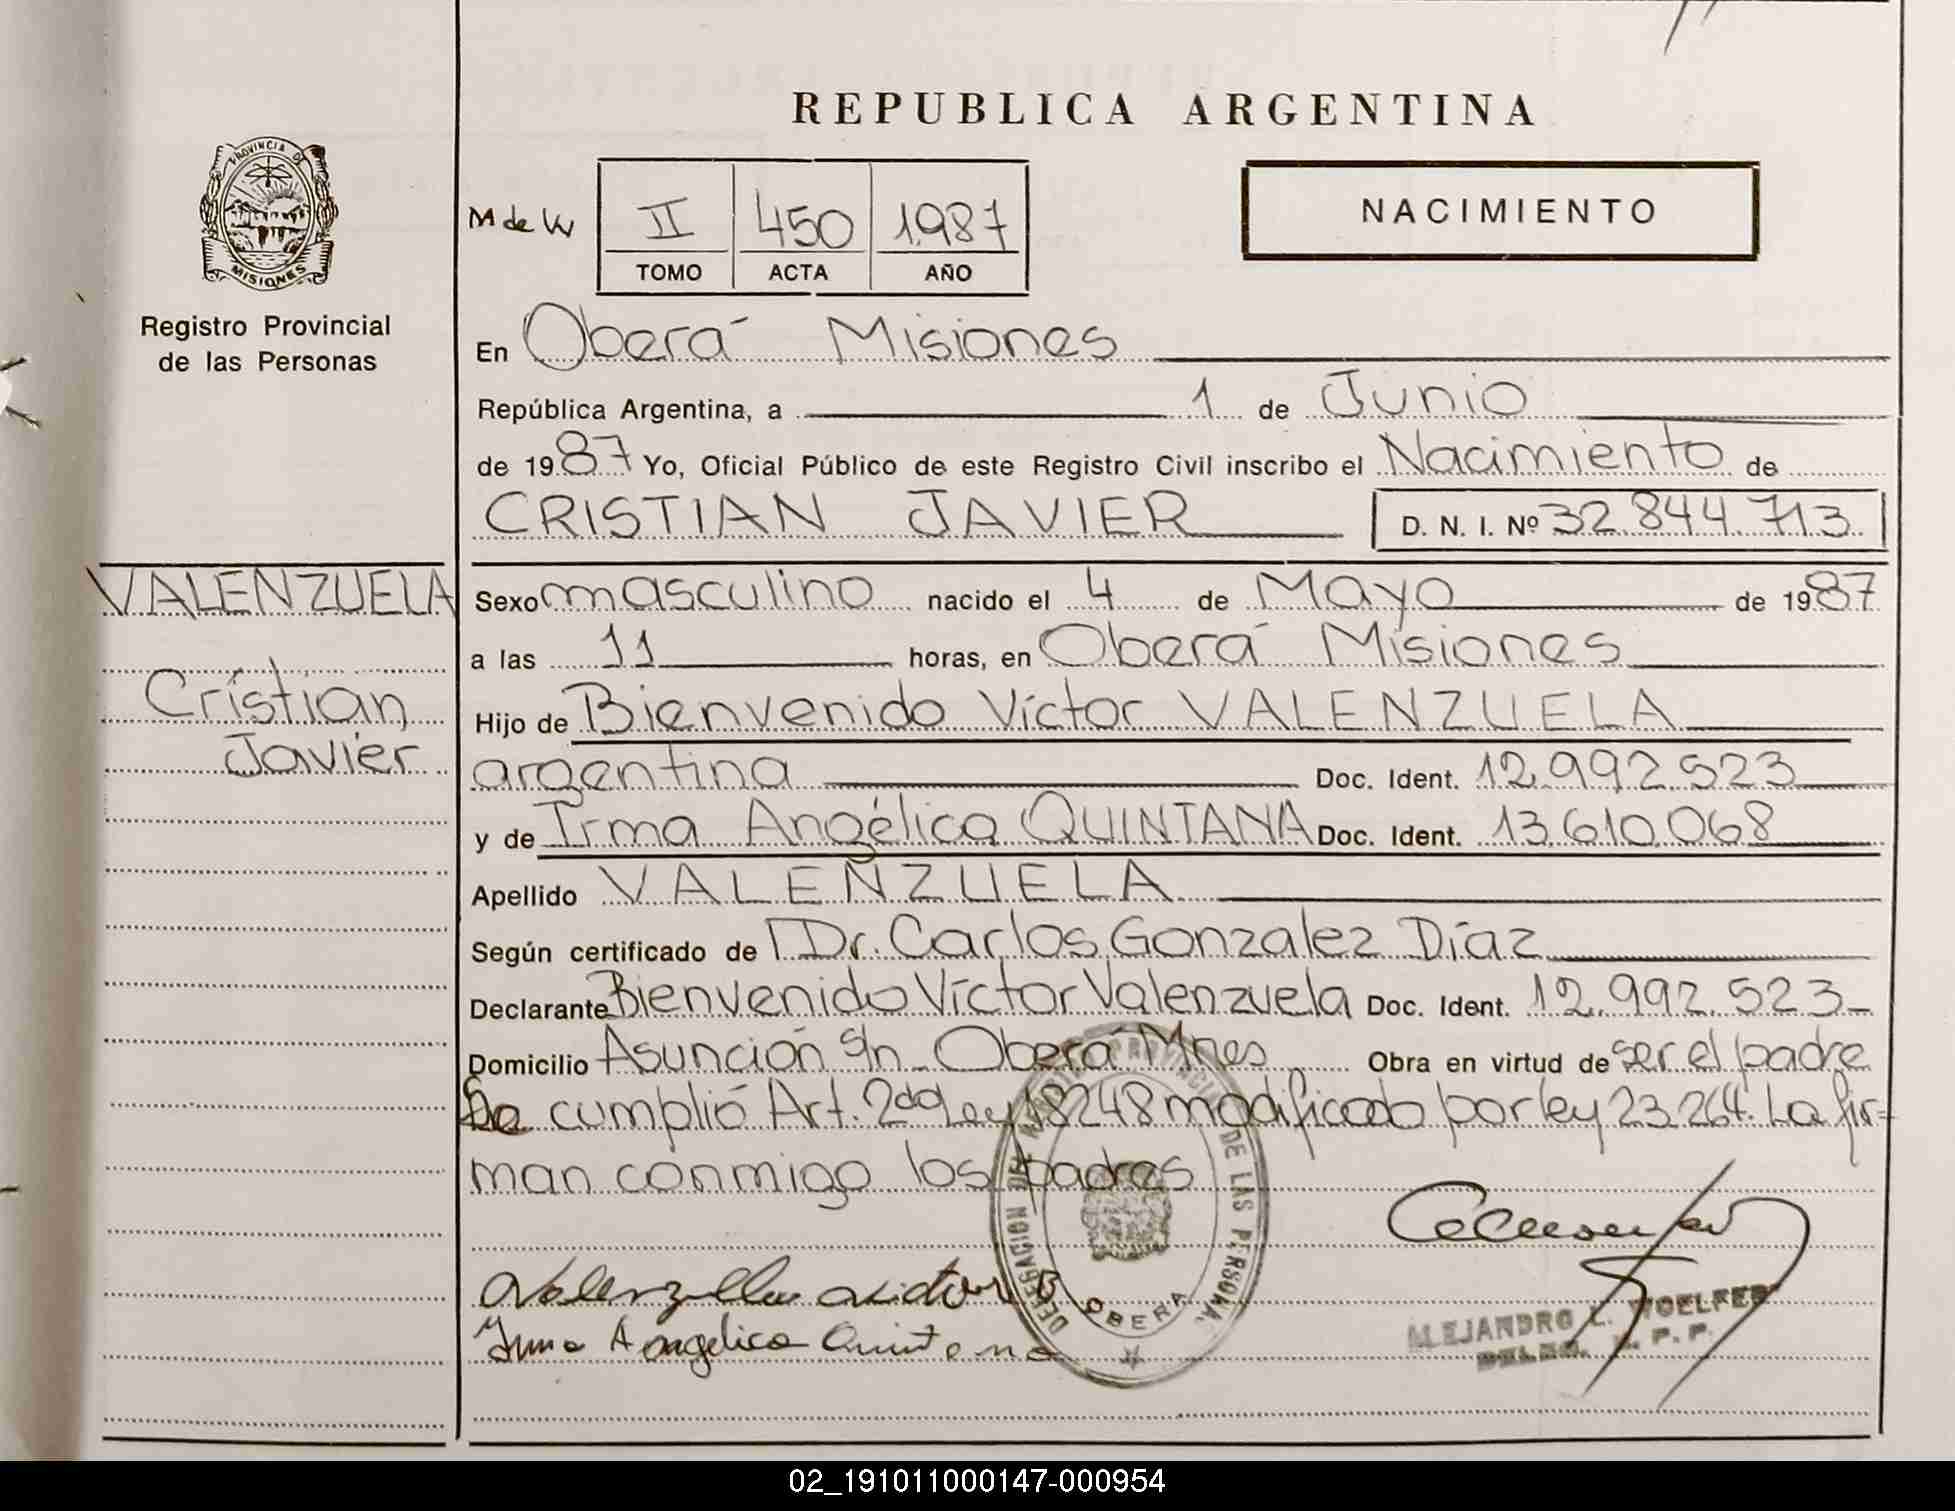 REPUBLICA ARGENTINA
PROVINCIA DE
MISIONES
Registro Provincial
de las Personas
M de W
II 450 1987
TOMO ACTA AÑO
NACIMIENTO
En Oberá Misiones
República Argentina, a 1 de Junio
de 1987 Yo, Oficial Público de este Registro Civil inscribo el Nacimiento de
CRISTIAN JAVIER D. N. I. Nº 32.844.713.
VALENZUELA
Cristian
Javier
Sexo masculino nacido el 4 de Mayo de 1987
a las 11 horas, en Oberá Misiones
Hijo de Bienvenido Víctor VALENZUELA
argentina Doc. Ident. 12.992.523
y de Irma Angélica QUINTANA Doc. Ident. 13.610.068
Apellido VALENZUELA
Según certificado de Dr. Carlos Gonzalez Díaz
Declarante Bienvenido Víctor Valenzuela Doc. Ident. 12.992.523
Domicilio Asunción s/n Oberá Mnes Obra en virtud de ser el padre
Se cumplió Art. 2do Ley 18248 modificado por ley 23.264. La fir=
man conmigo los padres
Valenzuela Victor B
Irma Angelica Quintana
OBERA
ALEJANDRO L. WOELFERT
02_191011000147-000954